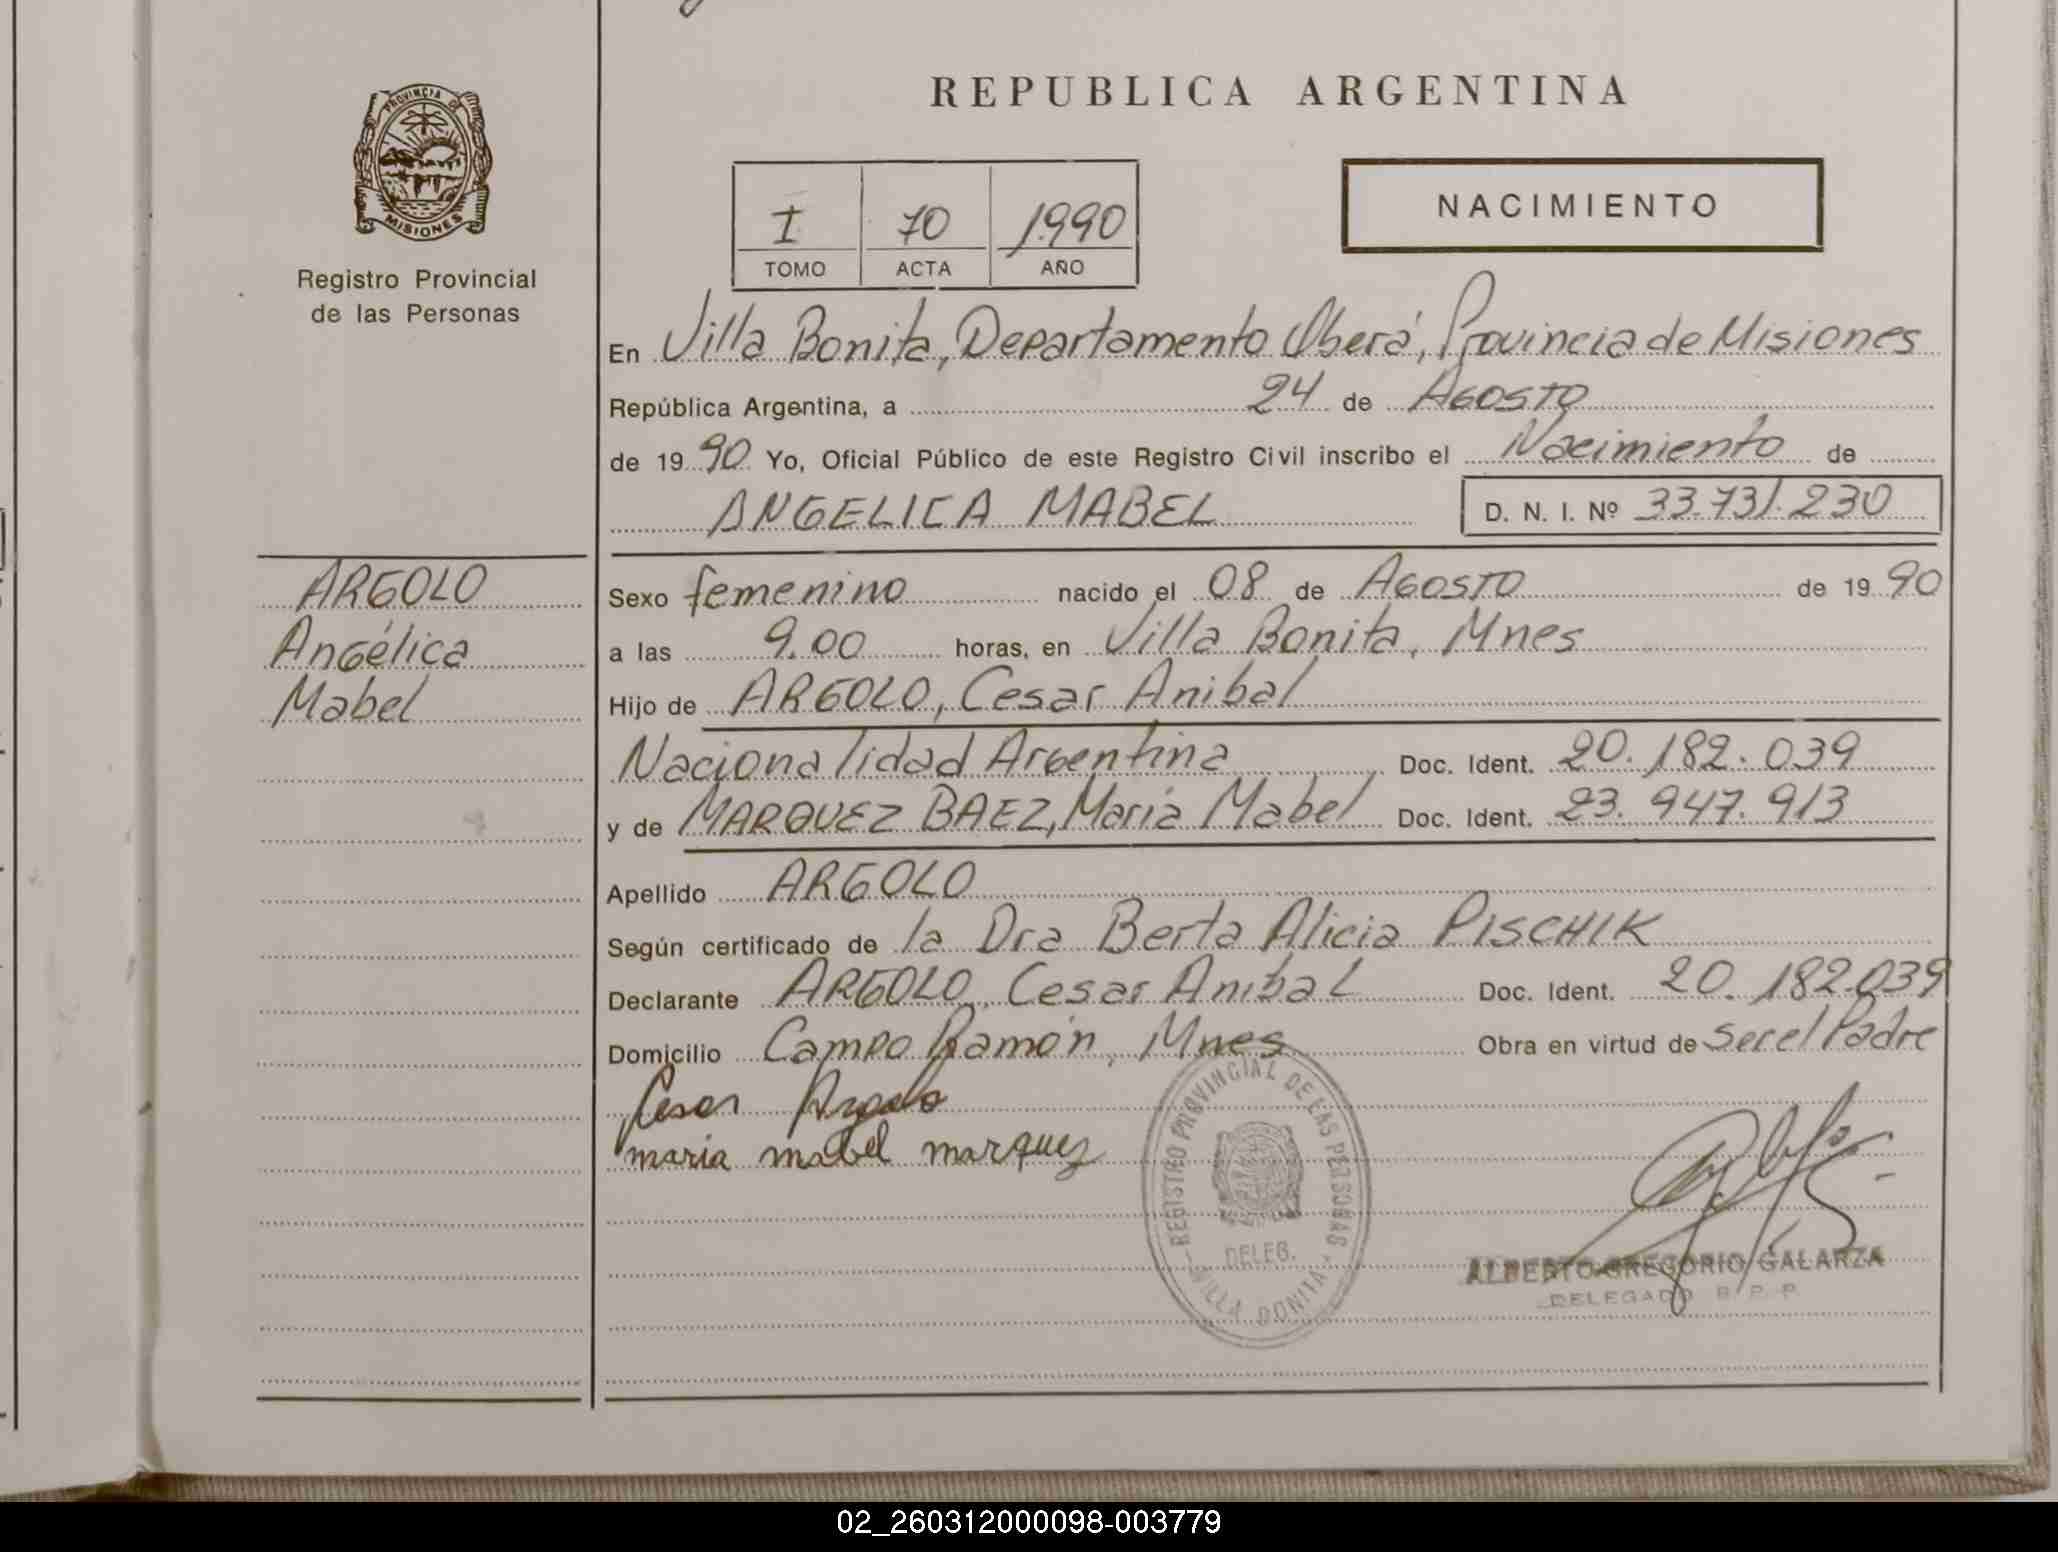 REPUBLICA ARGENTINA
PROVINCIA DE
MISIONES
Registro Provincial
de las Personas
I 70 1990
TOMO ACTA AÑO
NACIMIENTO
En Villa Bonita, Departamento Oberá, Provincia de Misiones
República Argentina, a 24 de Agosto
de 1990 Yo, Oficial Público de este Registro Civil inscribo el Nacimiento de
ANGELICA MABEL D. N. I. Nº 33.731.230
ARGOLO
Angélica
Mabel
Sexo femenino nacido el 08 de Agosto de 1990
a las 9.00 horas, en Villa Bonita, Mnes
Hijo de ARGOLO, Cesar Anibal
Nacionalidad Argentina Doc. Ident. 20.182.039
y de MARQUEZ BAEZ, María Mabel Doc. Ident. 23.947.913
Apellido ARGOLO
Según certificado de la Dra Berta Alicia PISCHIK
Declarante ARGOLO, Cesar Anibal Doc. Ident. 20.182.039
Domicilio Campo Ramón, Mnes Obra en virtud de ser el Padre
Cesar Argolo
maria mabel marquez
REGISTRO PROVINCIAL DE LAS PERSONAS
DELEG.
VILLA BONITA
ALBERTO GREGORIO GALARZA
DELEGADO R. P. P.
02_260312000098-003779